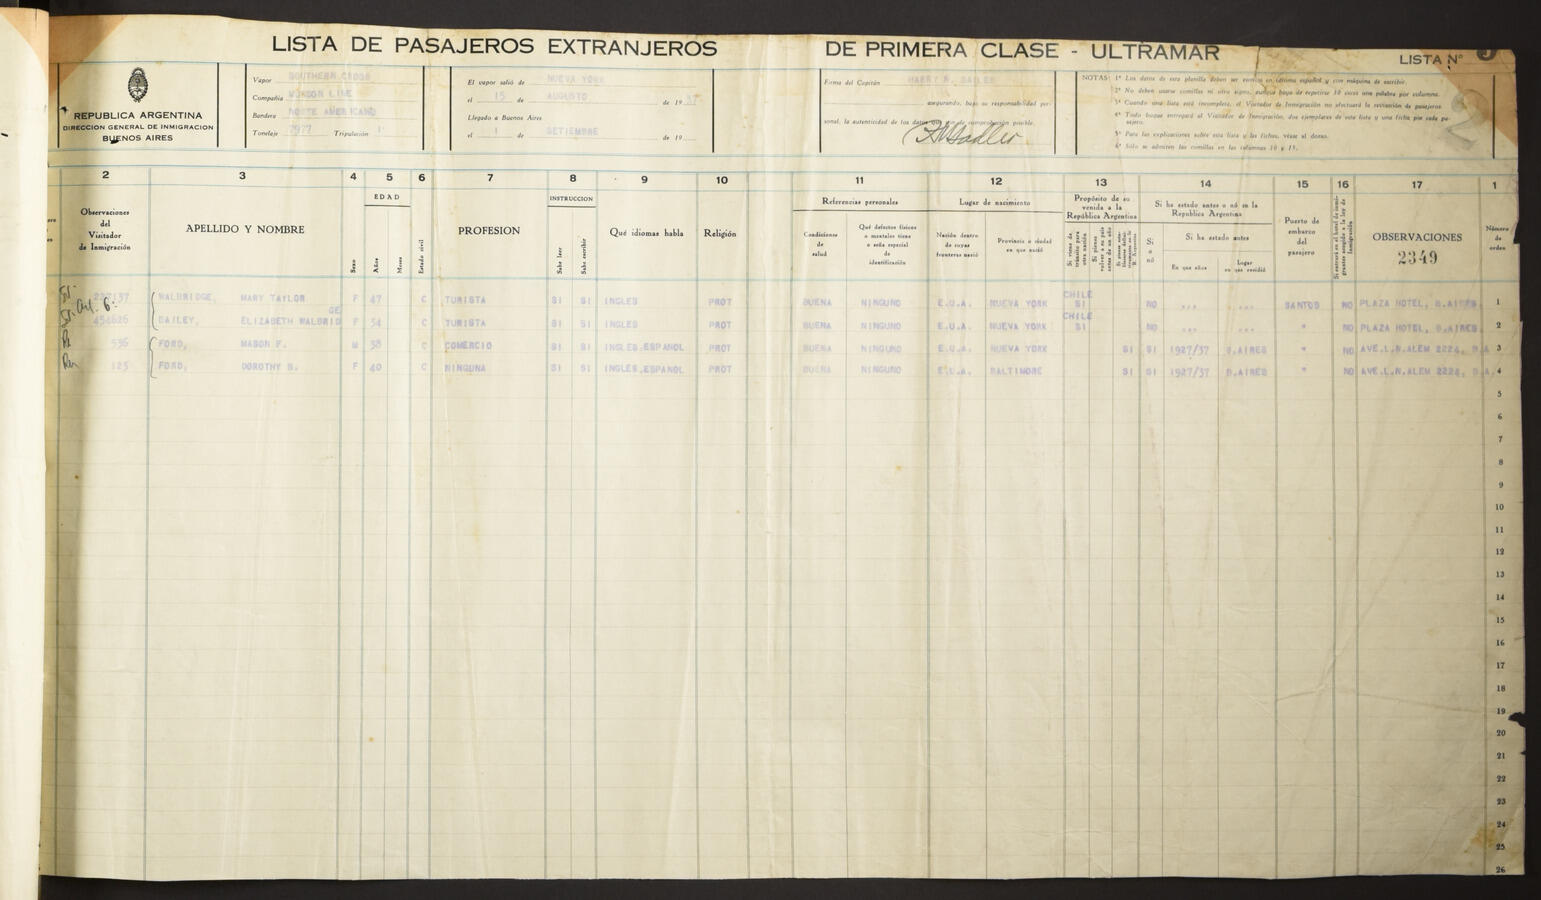 LISTA DE PASAJEROS EXTRANJEROS DE PRIMERA CLASE - ULTRAMAR LISTA Nº
REPUBLICA ARGENTINA
DIRECCION GENERAL DE INMIGRACION
BUENOS AIRES
Vapor SOUTHERN CROSS
Compañia MUNSON LINE
Bandera NORTE AMERICANO
Tonelaje 7977 Tripulación
El vapor salió de NUEVA YORK
el 15 de AUGUSTO de 1937
Llegado a Buenos Aires
el 1 de SETIEMBRE de 19
Firma del Capitán HARRY N. SADLER
asegurando, bajo su responsabilidad per-
sonal, la autenticidad de los datos que son de comprobación posible.
NOTAS: 1ª Los datos de esta planilla deben ser escritos en idioma español y con máquina de escribir.
2ª No deben usarse comillas ni otro signo, aunque haya de repetirse 10 veces una palabra por columna.
3ª Cuando una lista está incompleta, el Visitador de Inmigración no efectuará la revisación de pasajeros.
4ª Todo buque entregará al Visitador de Inmigración, dos ejemplares de esta lista y una ficha por cada pa-
sajero.
5ª Para las explicaciones sobre esta lista y las fichas, véase al dorso.
6ª Sólo se admiten las comillas en las columnas 10 y 15.
2 3 4 5 6 7 8 9 10 11 12 13 14 15 16 17 1
Observaciones del Visitador de Inmigración
APELLIDO Y NOMBRE
Sexo
EDAD
Años
Meses
Estado civil
PROFESION
INSTRUCCION
Sabe leer
Sabe escribir
Qué idiomas habla
Religión
Referencias personales
Condiciones de salud
Qué defectos físicos o mentales tiene o seña especial de identificación
Lugar de nacimiento
Nación dentro de cuyas fronteras nació
Provincia o ciudad en que nació
Propósito de su venida a la República Argentina
Si viene de tránsito para otra nación
Si piensa volver a su país antes de un año
Si ha estado antes o nó en la Republica Argentina
Si o nó
Si ha estado antes
En que años
Lugar en que residió
Puerto de embarco del pasajero
OBSERVACIONES
2349
Número de orden
237137 WALBRIDGE, MARY TAYLOR F 47 C TURISTA SI SI INGLES PROT BUENA NINGUNO E.U.A. NUEVA YORK CHILE SI NO ... ... SANTOS NO PLAZA HOTEL, B.AIRES 1
454626 BAILEY, ELIZABETH WALBRIDGE F 54 C TURISTA SI SI INGLES PROT BUENA NINGUNO E.U.A. NUEVA YORK CHILE SI NO ... ... " NO PLAZA HOTEL, B.AIRES 2
536 FORD, MASON F. M 38 C COMERCIO SI SI INGLES.ESPANOL PROT BUENA NINGUNO E.U.A. NUEVA YORK SI SI 1927/37 B.AIRES " NO AVE.L.N.ALEM 2224, B.A. 3
125 FORD, DOROTHY B. F 40 C NINGUNA SI SI INGLES.ESPANOL PROT BUENA NINGUNO E.U.A. BALTIMORE SI SI 1927/37 B.AIRES " NO AVE.L.N.ALEM 2224, B.A. 4
5
6
7
8
9
10
11
12
13
14
15
16
17
18
19
20
21
22
23
24
25
26